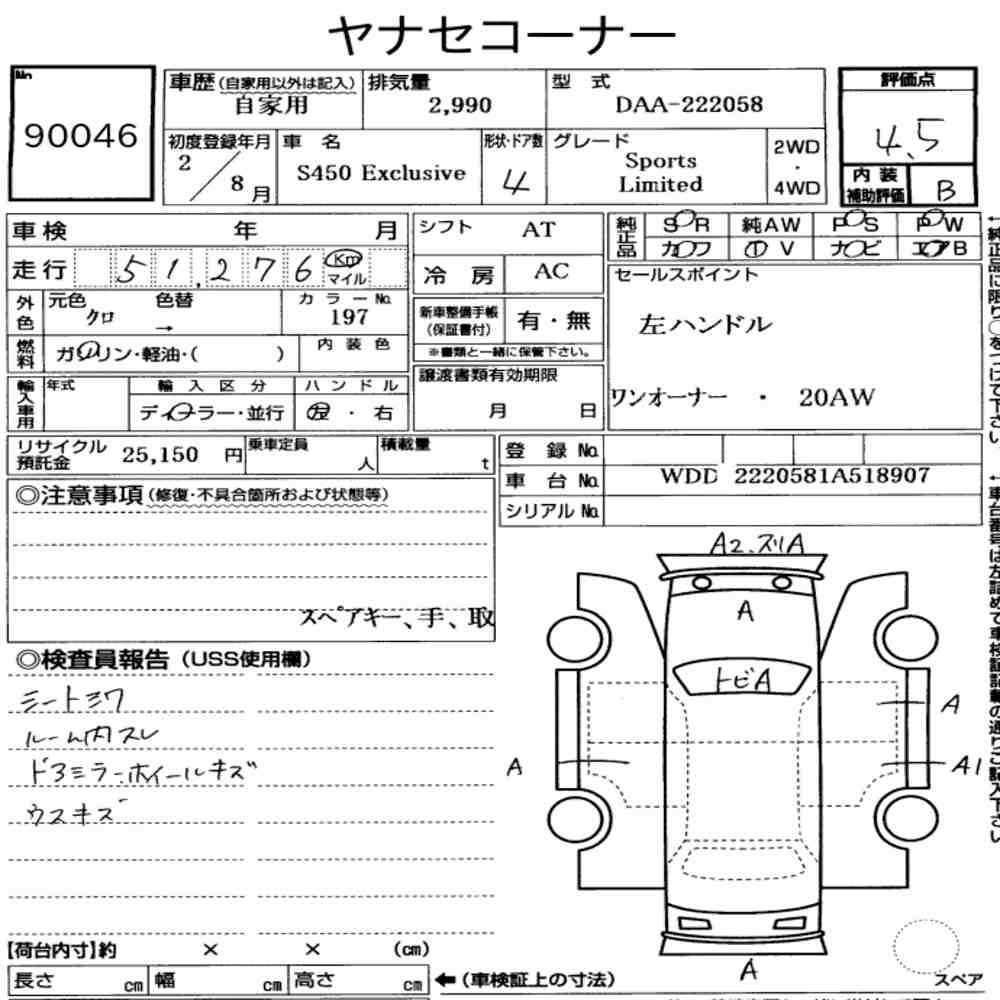 ヤナセコーナー
No.
90046
車歴 (自家用以外は記入)
自家用
排気量
2,990
型 式
DAA-222058
評価点
4.5
初度登録年月
2 / 8 月
車 名
S450 Exclusive
形状・ドア数
4
グレード
Sports
Limited
2WD
・
4WD
内 装
補助評価
B
車検 年 月
走行 51,276 Km
マイル
シフト AT
冷 房 AC
純正品
SR 純AW PS PW
カワ TV ナビ エアB
セールスポイント
左ハンドル
ワンオーナー ・ 20AW
外色
元色 色替
クロ →
カラーNo.
197
新車整備手帳
(保証書付)
有・無
※書類と一緒に保管下さい。
燃料
ガソリン・軽油・( )
内 装 色
譲渡書類有効期限
月 日
輸入車用
年式
輸 入 区 分
ディーラー・並行
ハ ン ド ル
左 ・ 右
リサイクル
預託金
25,150 円
乗車定員
人
積載量
t
登 録 No.
車 台 No. WDD 2220581A518907
シリアル No.
◎注意事項 (修復・不具合箇所および状態等)
スペアキー、手、取
◎検査員報告 (USS使用欄)
シートシワ
ルーム内スレ
ドアミラー、ホイールキズ
ウスキズ
A2、スリA
A
トビA
A
A
A1
A
スペア
【荷台内寸】約 × × (cm)
長さ cm 幅 cm 高さ cm
←(車検証上の寸法)
↑純正品に限り○をつけて下さい。